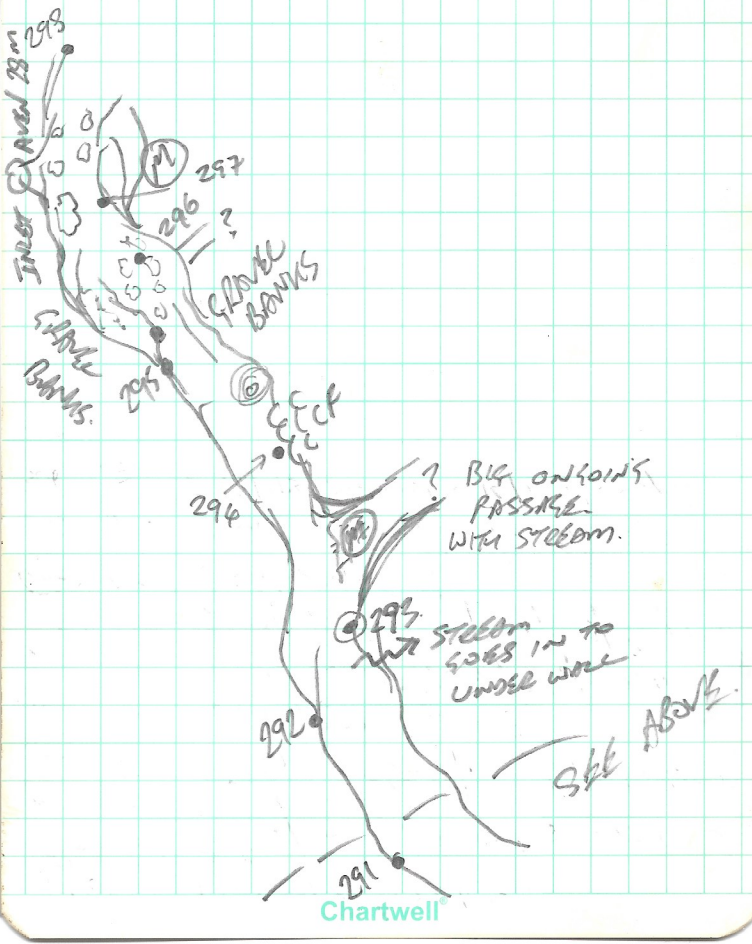 298
INLET
AVEN 28M
M
297
296
?
GRAVEL
BANKS
GRAVEL
BANKS.
295
294
? BIG ONGOING
PASSAGE
WITH STREAM.
293
STREAM
GOES IN TO
UNDER WALL
292
SEE ABOVE
291
Chartwell